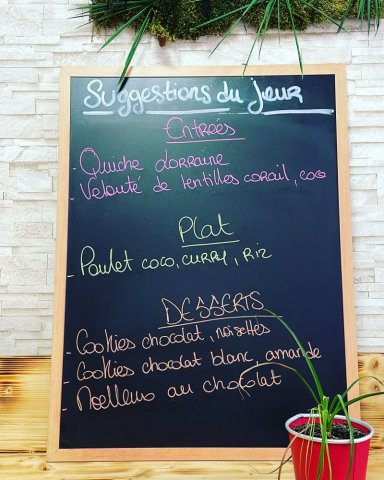 Suggestions du jour
Entrées
- Quiche Lorraine
- Velouté de lentilles corail, coco
Plat
- Poulet coco, curry, riz
DESSERTS
- Cookies chocolat, noisettes
- Cookies chocolat blanc, amande
- Moelleux au chocolat